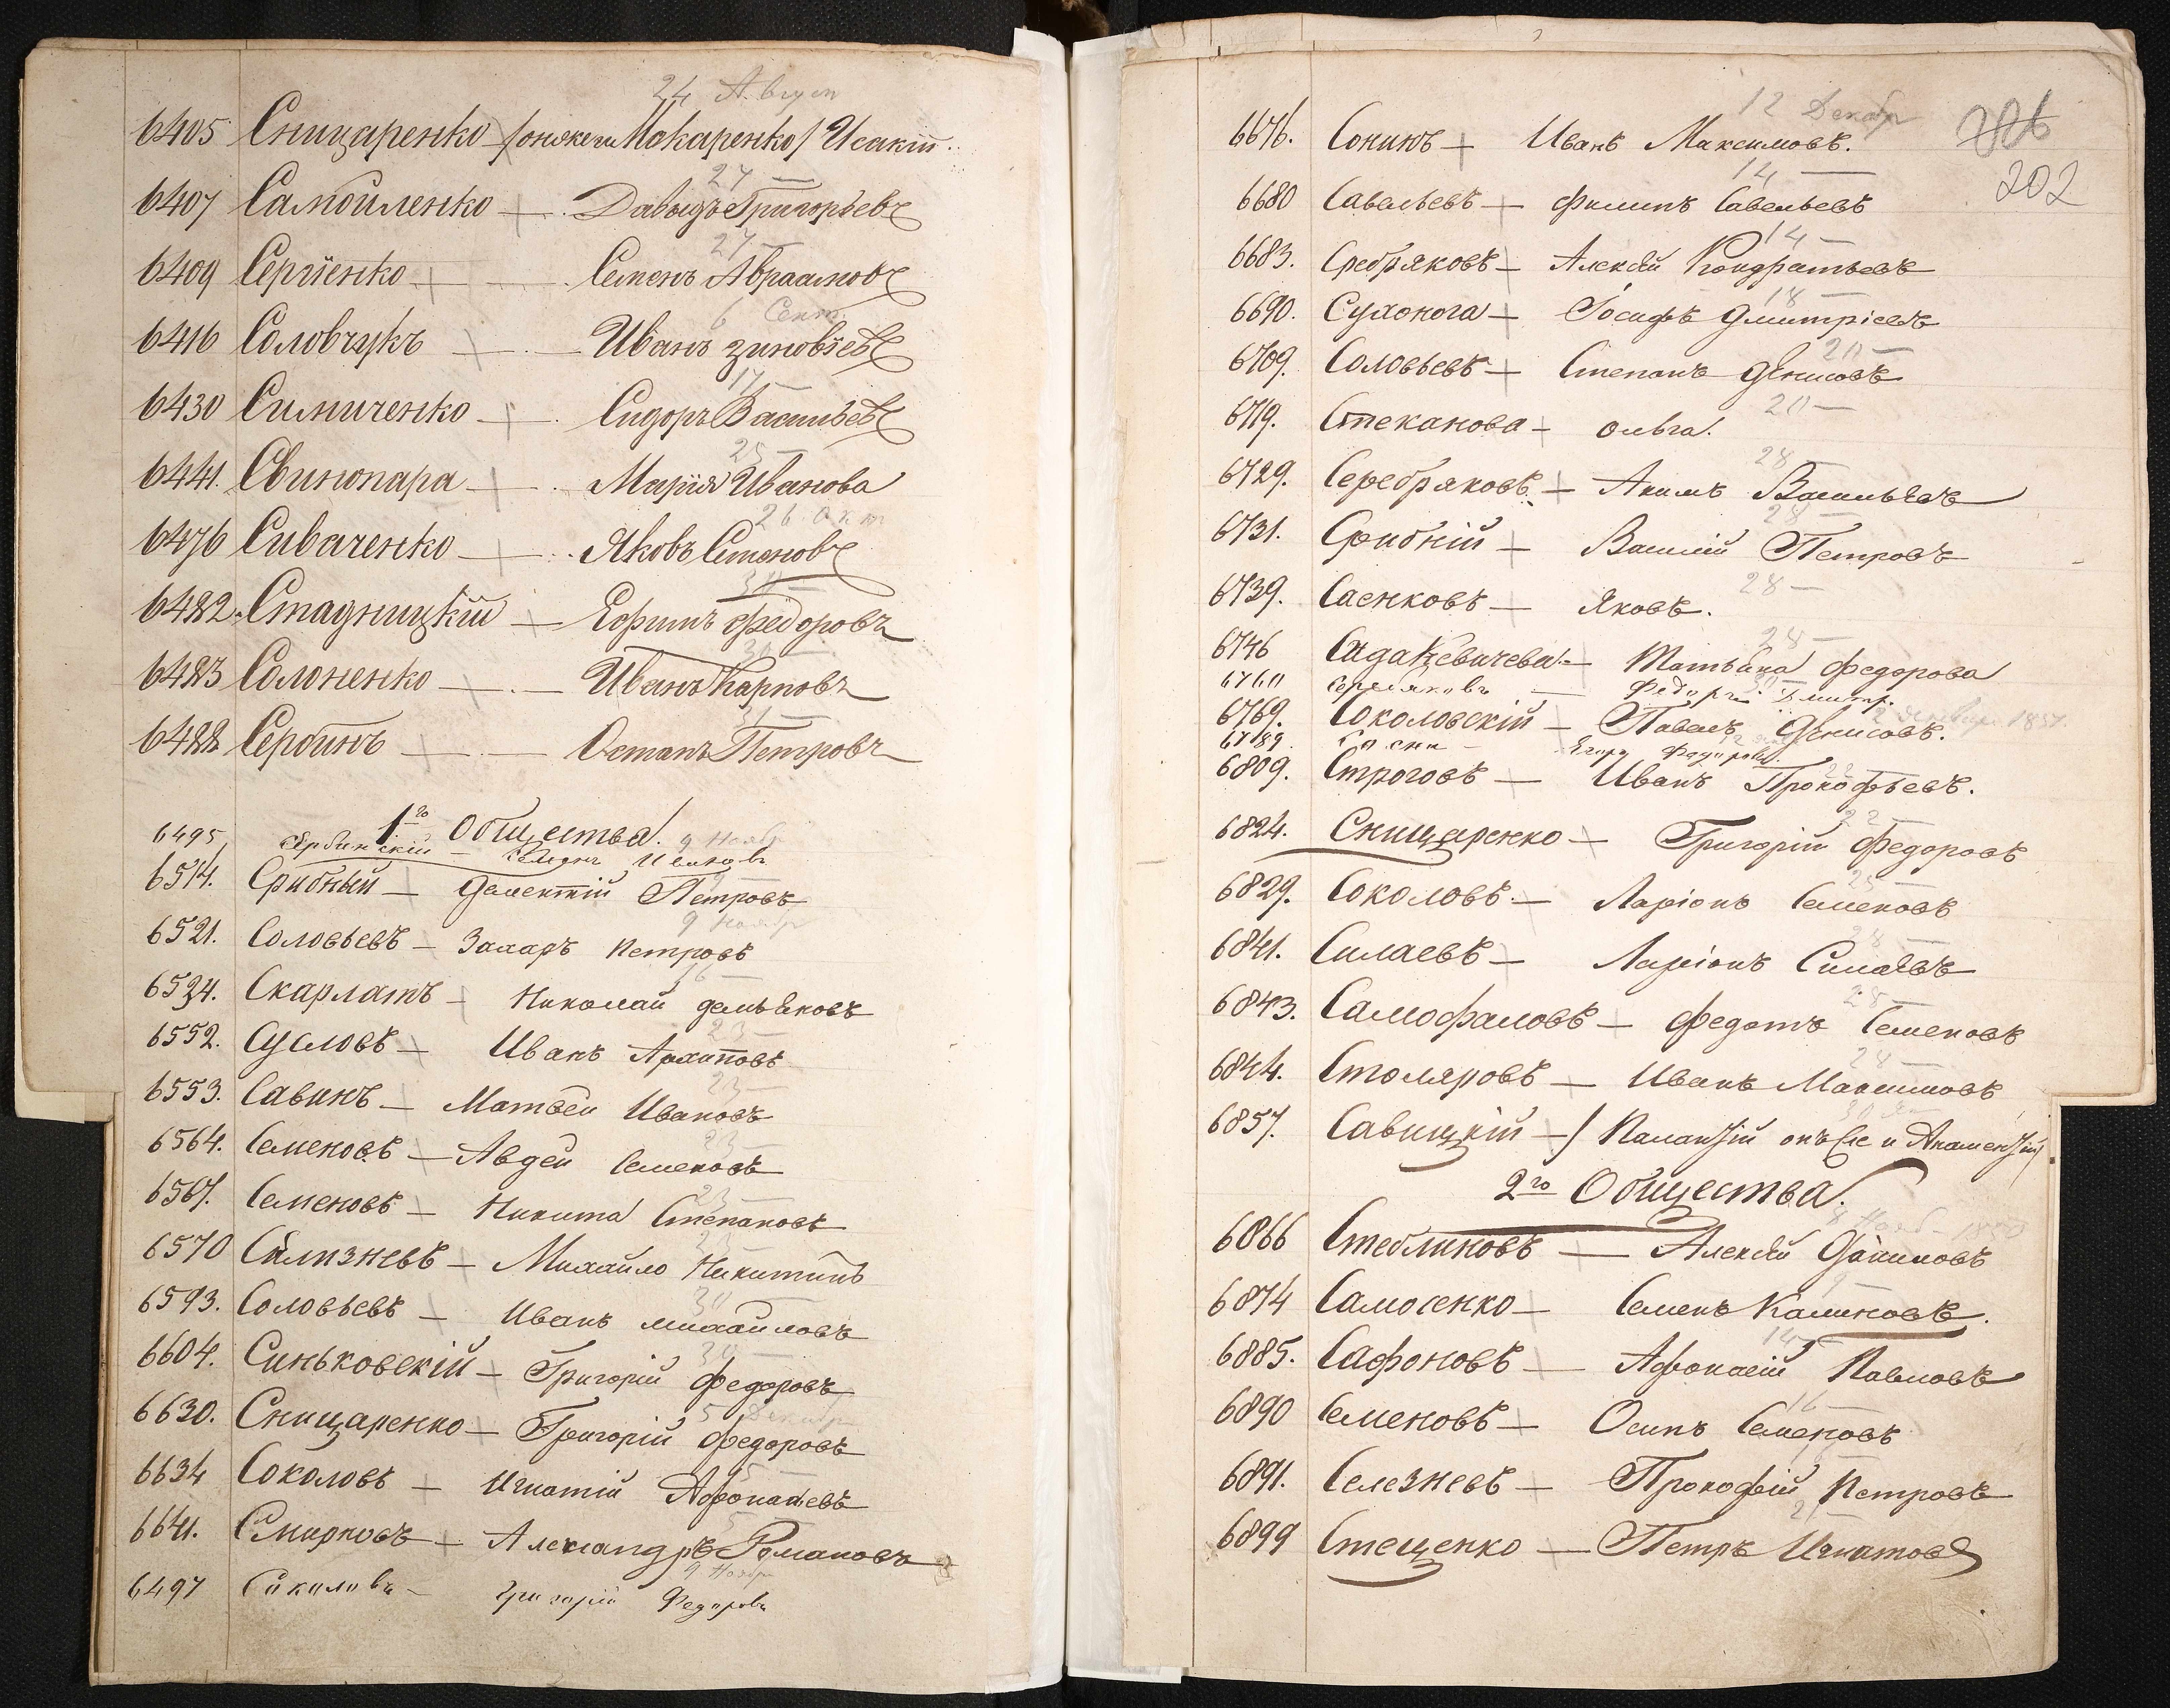 24 Август
6405 Снищаренко (онжеги Макаренко) Исакій.
27 —
6407 Самойленко — Давыдъ Григорьевъ
27 —
6409 Сергіенко — Семенъ Авраамовъ
6 Сент.
6416 Соловчукъ — Иванъ Зиновіевъ
17 —
6430 Симиченко — Сидоръ Васильевъ
25 —
6441. Свинопара — Марія Иванова
26 Окт
6476 Сиваченко — Яковъ Семеновъ
30 —
6482. Стадницкій — Ефимъ Федоровъ
30 —
6483 Солоненко — Иванъ Карповъ
31 —
6488 Сербинъ — Остапъ Петровъ
1го Общества.
9 Нояб
6495 Сербинскій — Семенъ Ивановъ
9 —
6514. Срибный — Дементій Петровъ
9 Ноябр
6521. Соловьевъ — Захаръ Петровъ
16 —
6524. Скарлатъ — Николай Демьяновъ
23 —
6552. Сусловъ — Иванъ Архиповъ
23 —
6553. Савинъ — Матвѣй Ивановъ
23 —
6564. Семеновъ — Авдей Семеновъ
23 —
6567. Семеновъ — Никита Степановъ
6570 Силизневъ — Михайло Никитинъ
30 —
6593. Соловьевъ — Иванъ Михайловъ
30 —
6604. Синьковскій — Григорій Федоровъ
5 Декабр
6630. Снищаренко — Григорій Федоровъ
5 —
6634 Соколовъ — Игнатій Афонасьевъ
5 —
6641. Смирновъ — Александръ Романовъ
9 Ноябр
6497 Соколовъ — Григорій Федоровъ
12 Декабр
202
6676. Сонинъ — Иванъ Максимовъ.
14 —
6680 Савельевъ — Филипъ Савельевъ
14 —
6683. Сребряковъ — Алексѣй Кондратьевъ
18 —
6690. Сухонога — Іосифъ Дмитріевъ
20 —
6709. Соловьевъ — Степанъ Денисовъ
20 —
6719. Стеканова — Ольга.
28 —
6729. Серебряковъ. — Акимъ Васильевъ
28 —
6731. Срибній — Василій Петровъ
28 —
6739. Саенковъ — Яковъ.
28 —
6746 Садакевичева — Татьяна Федорова
30 —
6760 Серебяковъ — Федоръ Дмитр.
6769. Соколовскій — Павелъ Денисовъ.
6789. — Егоръ Федоровъ.
6809. Строговъ — Иванъ Прокофьевъ.
22 —
6824. Снищаренко — Григорій Федоровъ
25 —
6829. Соколовъ. — Ларіонъ Семеновъ
28 —
6841. Силаевъ — Ларіонъ Силаевъ
28 —
6843. Самофаловъ — Федотъ Семеновъ
28 —
6844. Столяровъ — Иванъ Максимовъ
6857. Савицкій — онъ же и
2го Общества.
6866 Стеблиновъ — Алексѣй Даниловъ
6874 Самосенко — Семенъ Калиновъ.
14 —
6885. Сафоновъ — Афонасій Павловъ
16 —
6890 Семеновъ — Осипъ Семеновъ
6891. Селезневъ — Прокофій Петровъ
21 —
6899 Стеценко — Петръ Игнатовъ